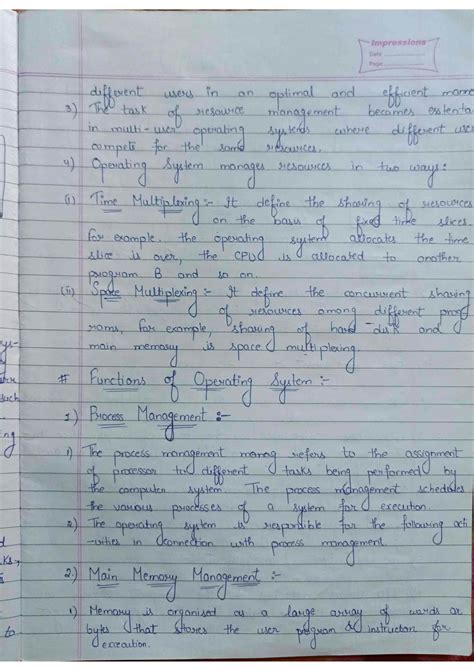 Impressions
Date
Page
different users in an optimal and efficient mann
3) The task of resource management becomes essentia
in multi-user operating systems where different use
compete for the same resources.
4) Operating System manages resources in two ways:
(i) Time Multiplexing :- It define the sharing of resources
on the basis of fixed time slices.
For example, the operating system allocates the time
slice is over, the CPU is allocated to another
program B and so on.
(ii) Space Multiplexing :- It define the concurrent sharing
of resources among different prog
rams, for example, sharing of hard-disk and
main memory is space multiplexing.
# Functions of Operating System :-
1) Process Management :-
1) The process management manag refers to the assignment
of processor to different tasks being performed by
the computer system. The process management schedules
the various processes of a system for execution.
2) The operating system is responsible for the following act
-ivities in connection with process management.
2.) Main Memory Management :-
1) Memory is organised as a large array of words or
bytes that stores the user program & instruction for
execution.